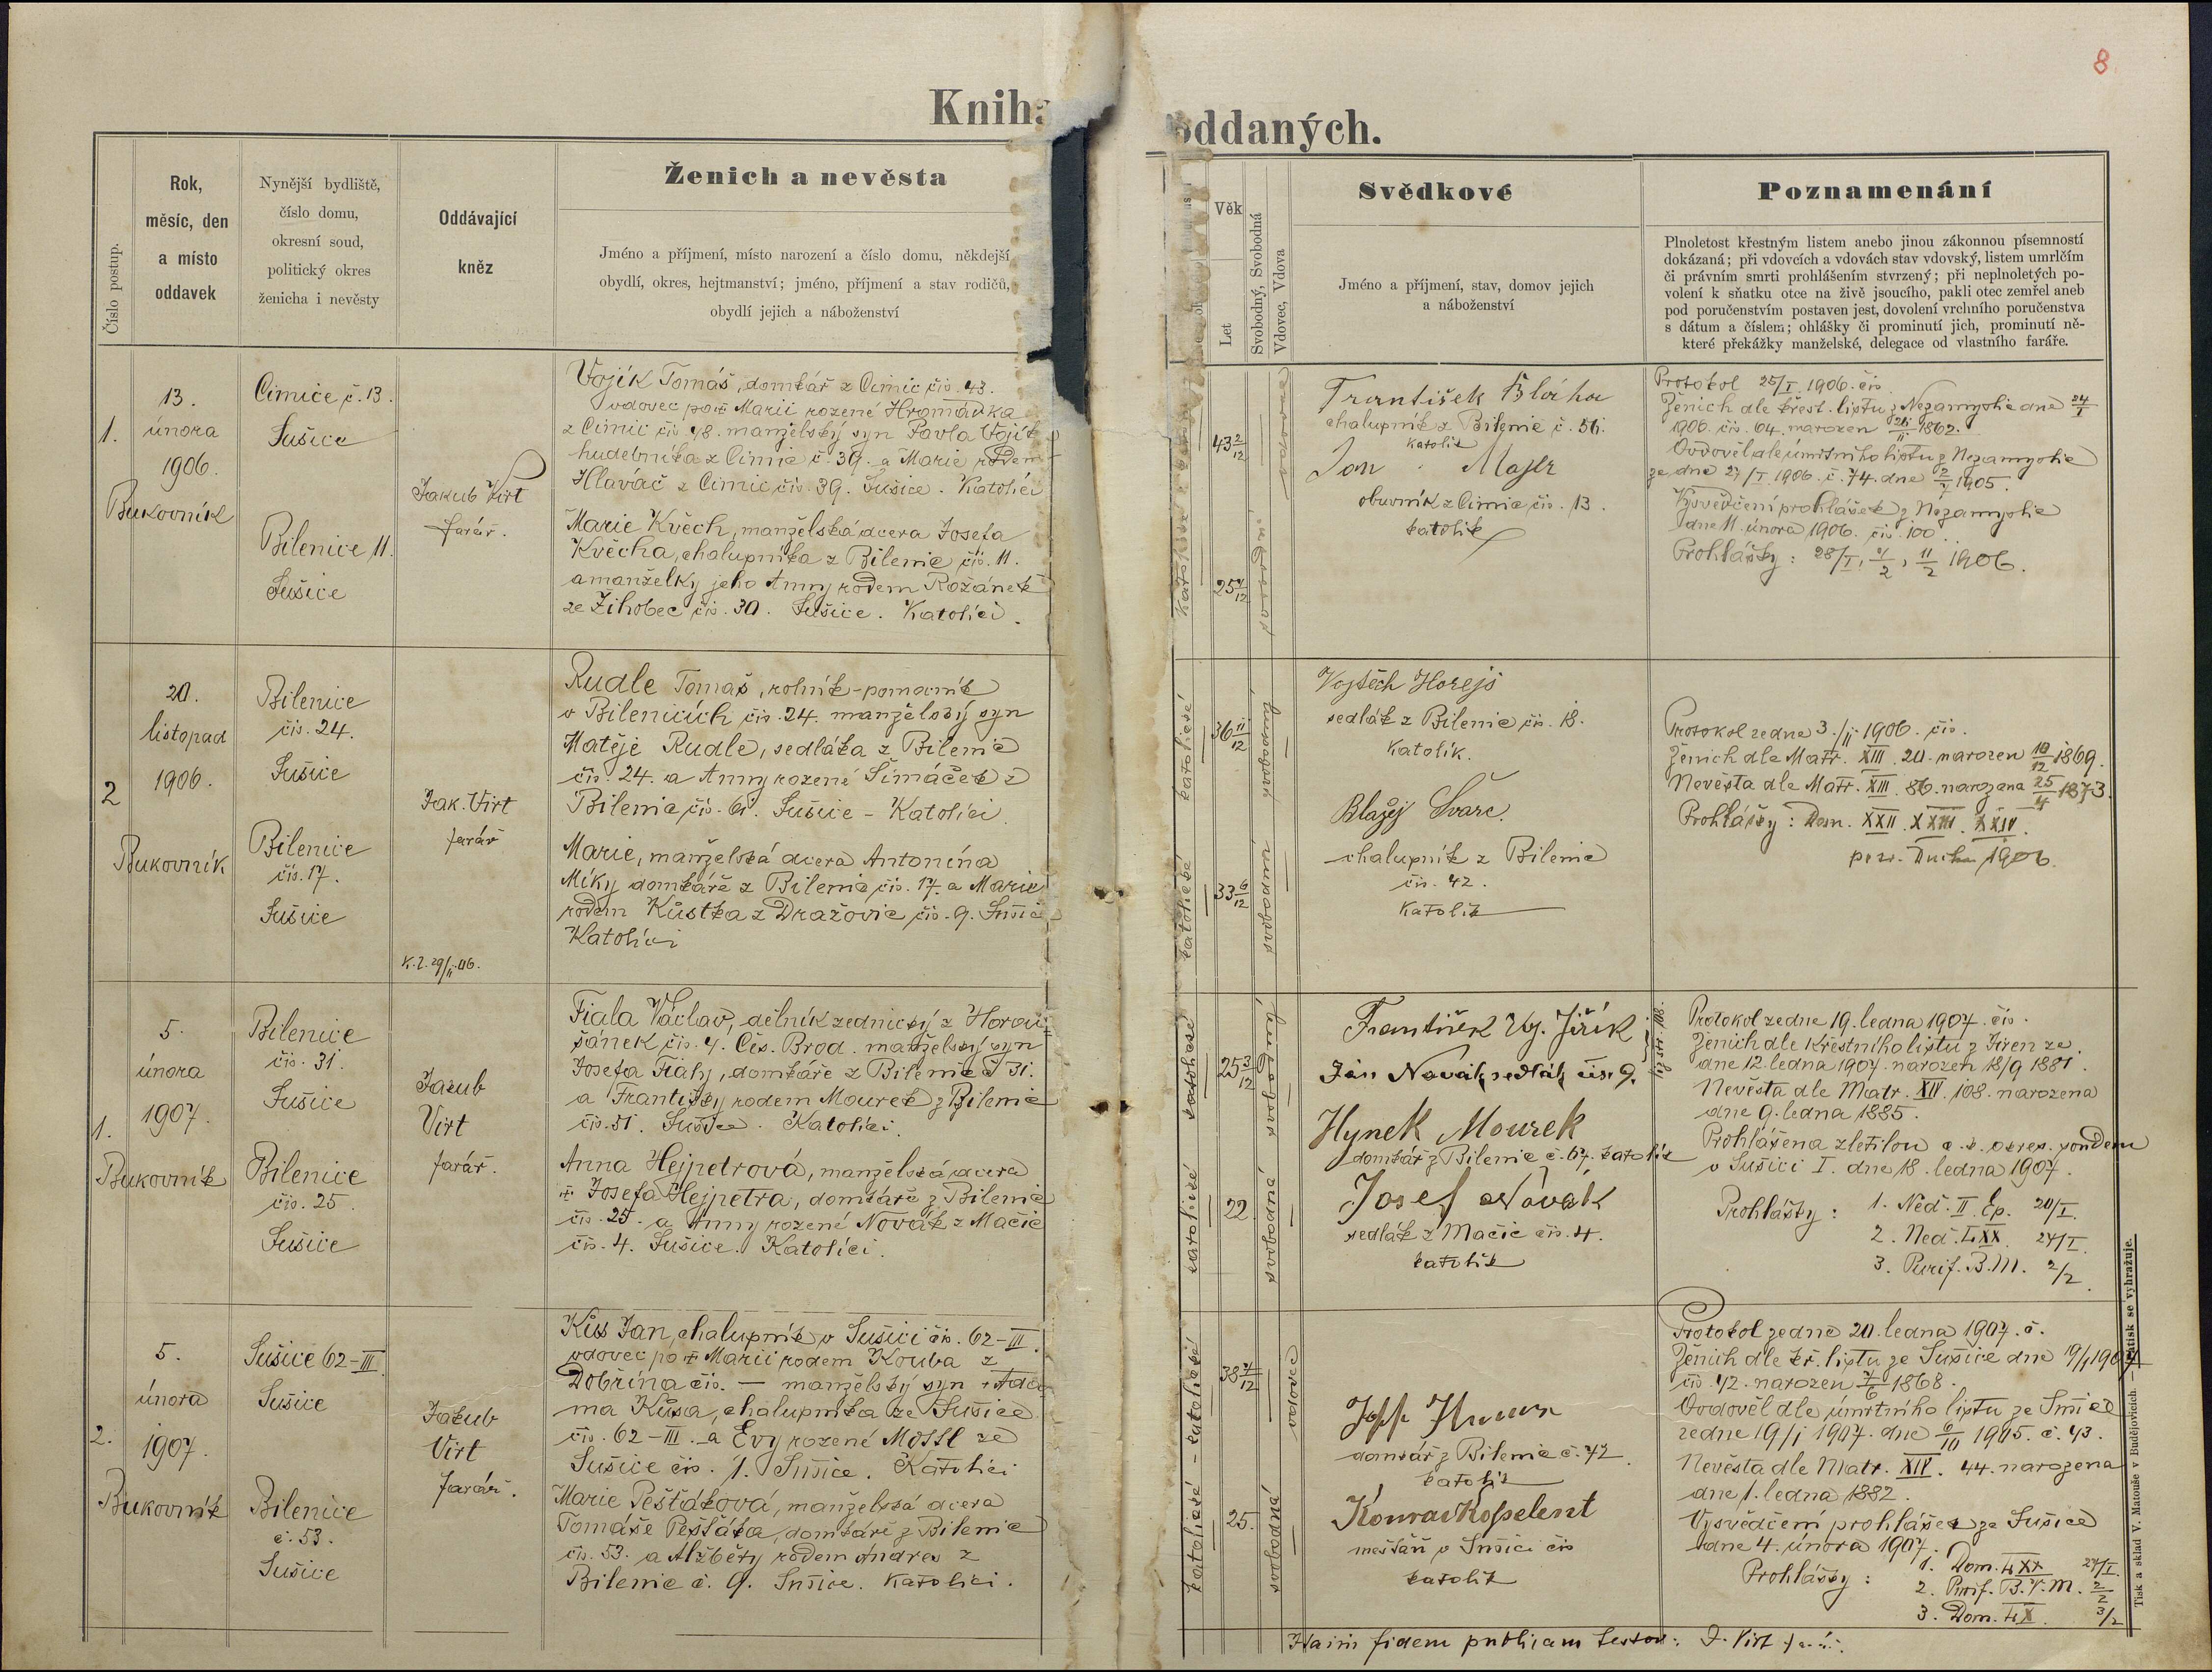 8
Kniha oddaných.
Číslo postup.
Rok,
měsíc, den
a místo
oddavek
Nynější bydliště,
číslo domu,
okresní soud,
politický okres
ženicha i nevěsty
Oddávající
kněz
Ženich a nevěsta
Jméno a příjmení, místo narození a číslo domu, někdejší
obydlí, okres, hejtmanství; jméno, příjmení a stav rodičů,
obydlí jejich a náboženství
Věk
Let
Svobodný, Svobodná
Vdovec, Vdova
Svědkové
Jméno a příjmení, stav, domov jejich
a náboženství
Poznamenání
Plnoletost křestným listem anebo jinou zákonnou písemností
dokázaná; při vdovcích a vdovách stav vdovský, listem umrlčím
či právním smrti prohlášením stvrzený; při neplnoletých po-
volení k sňatku otce na živě jsoucího, pakli otec zemřel aneb
pod poručenstvím postaven jest, dovolení vrchního poručenstva
s dátum a číslem; ohlášky či prominutí jich, prominutí ně-
které překážky manželské, delegace od vlastního faráře.
1.
13.
února
1906.
Bukovník
Cimice č. 13.
Sušice
Bilenice 11.
Sušice
Jakub Virt
farář.
Vojík Tomáš, domkář z Cimic čís. 43.
vdovec po † Marii rozené Hromádka
z Cimic čís 48. manželský syn Pavla Vojík
hudebníka z Cimic č. 39. a Marie rodem
Hlaváč z Cimic čís. 39. Sušice. Katolíci
Marie Kvěch, manželská dcera Josefa
Kvěcha, chalupníka z Bilenic čís. 11.
a manželky jeho Anny rodem Rožánek
ze Žihobec čís. 30. Sušice. Katolíci.
katolické
katolické
43 2/12
25 4/12
vdovec
svobodná
František Bláha
chalupník z Bilenic č. 56.
katolík
Jan Majer
obuvník z Cimic čís. 13.
katolík
Protokol 25/I. 1906. čís.
Ženich dle křest. listu z Nezamyslic dne 24/I
1906. čís. 64. narozen 1862.
Ovdověl dle úmrtního listu z Nezamyslic
ze dne 27/I. 1906. č. 74. dne 1905.
Vysvědčení prohlášek z Nezamyslic
dne 11. února 1906. čís. 100.
Prohlášky: 28/I, 4/2, 11/2 1906.
2
20.
listopad
1906.
Bukovník
Bilenice
čís. 24.
Sušice
Bilenice
čís. 17.
Sušice
Jak. Virt
farář
Rudle Tomáš, rolník-pomocník
v Bilenicích čís. 24. manželský syn
Matěje Rudle, sedláka z Bilenic
čís. 24. a Anny rozené Šimáček z
Bilenic čís. 61. Sušice - Katolíci
Marie, manželská dcera Antonína
Míky domkáře z Bilenic čís. 17. a Marie
rodem Kůstka z Dražovic čís. 9. Sušice
Katolíci
katolické
katolické
36 11/12
33 6/12
svobodný
svobodná
Vojtěch Horejš
sedlák z Bilenic čís. 18.
Katolík.
Blažej Švarc.
chalupník z Bilenic
čís. 42.
Katolík
Protokol ze dne 3./11. 1906. čís.
Ženich dle Matr. XIII. 20. narozen 10/12 1869.
Nevěsta dle Matr. XIII. 86. narozena 25/4 1873.
Prohlášky: Dom. XXII. XXIII. XXIV.
po sv. Duchu 1906.
1.
5.
února
1907.
Bukovník
Bilenice
čís. 31.
Sušice
Bilenice
čís. 25.
Sušice
Jakub
Virt
farář.
Fiala Václav, dělník zednický z Horou-
šánek čís. 4. Čes. Brod. manželský syn
Josefa Fialy, domkáře z Bilenic č 31.
a Františky rodem Mourek z Bilenic
čís. 51. Sušice. Katolíci.
Anna Hejpetrová, manželská dcera
† Josefa Hejpetra, domkáře z Bilenic
čís. 25. a Anny rozené Novák z Mačic
čís. 4. Sušice. Katolíci.
katolické
katolické
25 3/12
22
svobodný
svobodná
František Voj. Jiřík
Jan Novák, sedlák čís. 9.
Hynek Mourek
domkář z Bilenic č. 67. katolík
Josef Novák
sedlák z Mačic čís. 4.
katolík
Protokol ze dne 19. ledna 1907. čís.
Ženich dle Křestního listu z Jiren ze
dne 12. ledna 1907. narozen 18/9 1881.
Nevěsta dle Matr. XIV. 108. narozena
dne 9. ledna 1885.
Prohlášena zletilou c. k. okres. soudem
v Sušici I. dne 18. ledna 1907.
Prohlášky: 1. Ned. II. Ep. 20/I.
2. Ned. LXX. 27/I.
3. Purif. B. M. 2/2
2.
5.
února
1907.
Bukovník
Sušice 62-III
Sušice
Bilenice
č. 53.
Sušice
Jakub
Virt
farář.
Kůs Jan, chalupník v Sušici čís. 62-III.
vdovec po † Marii rodem Kouba z
Dobřína čís. — manželský syn † Ada-
ma Kůsa, chalupníka ze Sušice
čís. 62-III. a Evy rozené Mossl ze
Sušice čís. 1. Sušice. Katolíci
Marie Pešťáková, manželská dcera
Tomáše Pešťáka, domkáře z Bilenic
čís. 53. a Alžběty rodem Andres z
Bilenic č. 9. Sušice. Katolíci.
katolické - katolické
38 7/12
25.
vdovec
svobodná
domkář z Bilenic č. 42.
katolík
Konrad Kopelent
mešťan v Sušici čís
katolík
Protokol ze dne 20. ledna 1907. č.
Ženich dle kř. listu ze Sušice dne 19/1 1907
čís. 42. narozen 1868.
Ovdověl dle úmrtního listu ze Sušice
ze dne 19/1 1907. dne 6/10 1905. č. 43.
Nevěsta dle Matr. XIV. 44. narozena
dne 1. ledna 1882.
Vysvědčení prohlášek ze Sušice
dne 4. února 1907.
Prohlášky: 1. Dom. LXX 27/I.
2. Purif. B. V. M. 2/2
3. Dom. LX. 3/2
fidem publicam testor: J. Virt farář.
Tisk a sklad V. Matouše v Budějovicích. — Patisk se vyhražuje.